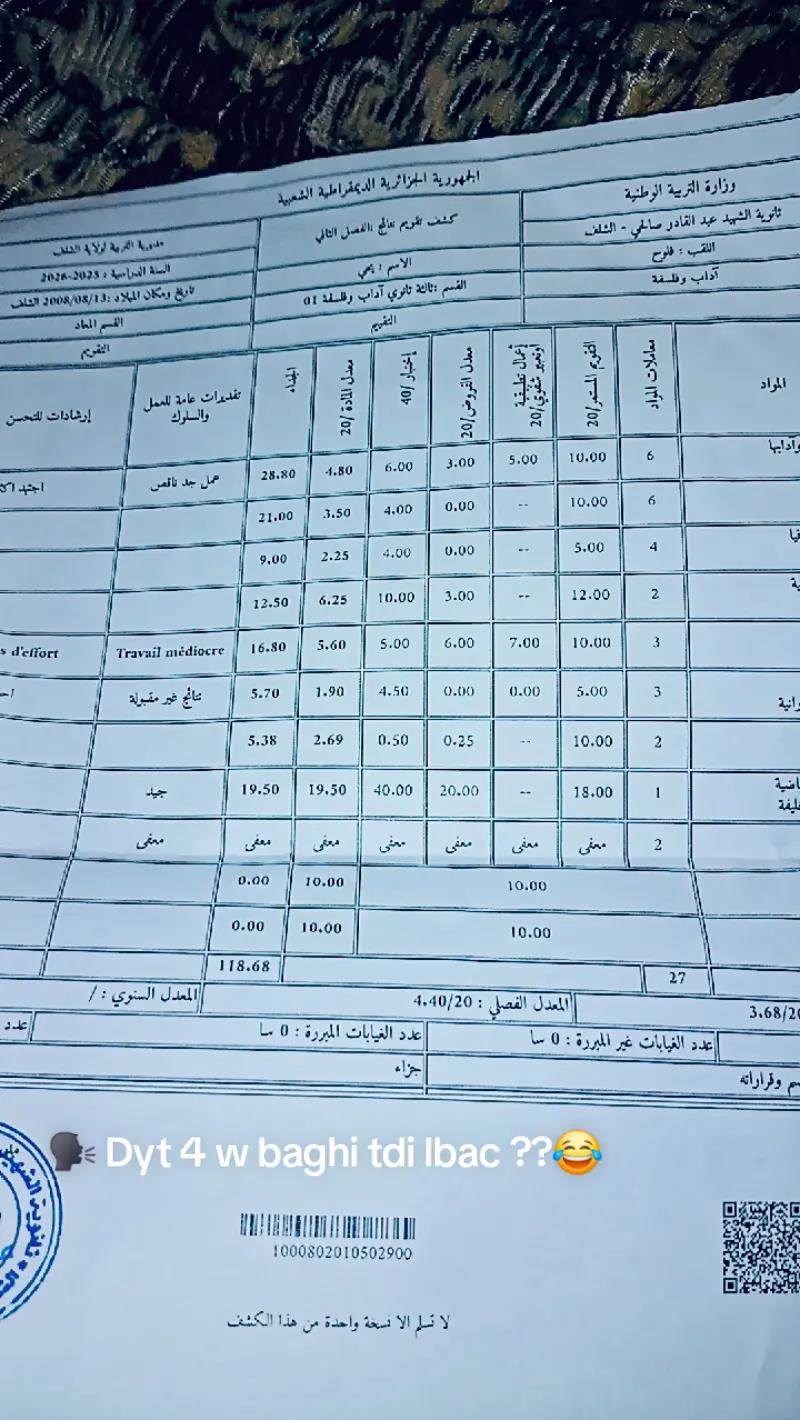 الجمهورية الجزائرية الديمقراطية الشعبية
وزارة التربية الوطنية
ثانوية الشهيد عبد القادر صالحي - الشلف
كشف تقويم نتائج :الفصل الثاني
مديرية التربية لولاية الشلف
اللقب : فلوح
الاسم : يحي
السنة الدراسية : 2025-2026
آداب وفلسفة
القسم :ثالثة ثانوي آداب وفلسفة 01
تاريخ ومكان الميلاد :2008/08/13 الشلف
القسم المعاد
التقييم
التقويم
المواد
معاملات المواد
التقويم المستمر/20
أعمال تطبيقية
/20
معدل الفروض/20
إختبار /40
معدل المادة /20
الجداء
تقديرات عامة للعمل والسلوك
إرشادات للتحسن
وادابها 6 10.00 5.00 3.00 6.00 4.80 28.80 عمل جد ناقص اجتهد
6 10.00 -- 0.00 4.00 3.50 21.00
4 5.00 -- 0.00 4.00 2.25 9.00
2 12.00 -- 3.00 10.00 6.25 12.50
3 10.00 7.00 6.00 5.00 5.60 16.80 Travail médiocre s d'effort
3 5.00 0.00 0.00 4.50 1.90 5.70 نتائج غير مقبولة
2 10.00 -- 0.25 0.50 2.69 5.38
1 18.00 -- 20.00 40.00 19.50 19.50 جيد
2 معفى معفى معفى معفى معفى معفى معفى
10.00 10.00 0.00
10.00 10.00 0.00
27 118.68
3.68/20
المعدل الفصلي : 4.40/20
المعدل السنوي : /
عدد الغيابات غير المبررة : 0 سا
عدد الغيابات المبررة : 0 سا
عدد
وقراراته
جزاء
Dyt 4 w baghi tdi lbac ??😂
1000802010502900
لا تسلم الا نسخة واحدة من هذا الكشف